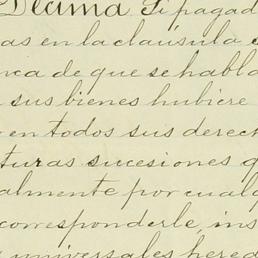 Décima Si pagad
as en la cláusula e
nca de que se habla
sus bienes hubiere
en todos sus derech
turas sucesiones q
almente por cualq
corresponderle, ins
universales hered